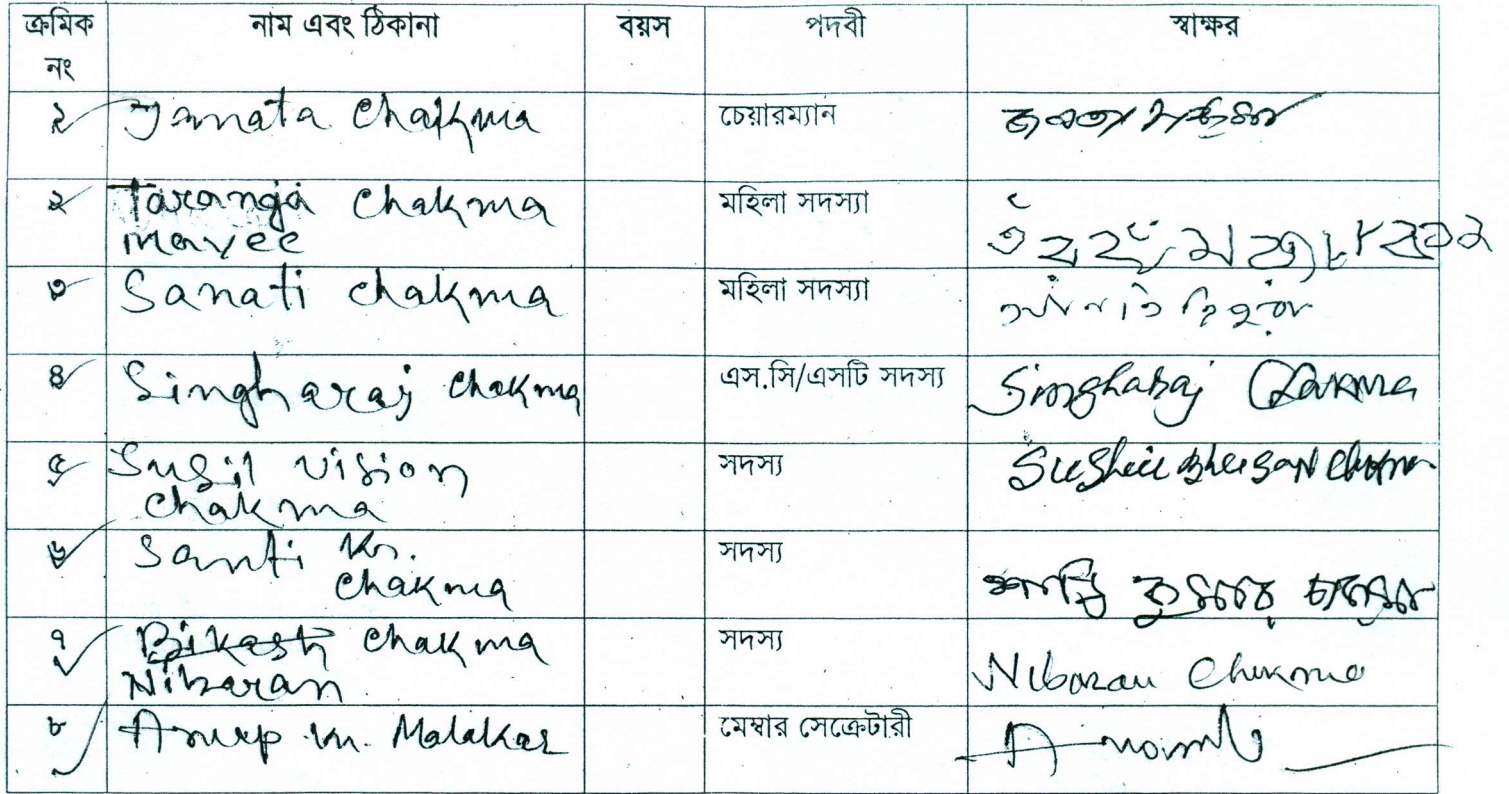 ক্রমিক নং নাম এবং ঠিকানা বয়স পদবী স্বাক্ষর
১ Janata Chakma চেয়ারম্যান
২ Taranga Chakma মহিলা সদস্যা
৩ Sanati Chakma মহিলা সদস্যা
৪ Singharaj Chakma এস.সি/এসটি সদস্য Singharaj Chakma
৫ Susil Vision সদস্য Sushil Bhusan Chakma
Chakma
৬ Santi Kr. সদস্য শান্তি কুমার চাকমা
Chakma
৭ Bikash Chakma সদস্য Nibaran Chakma
Nibaran
৮ Anup Kr. Malakar মেম্বার সেক্রেটারী